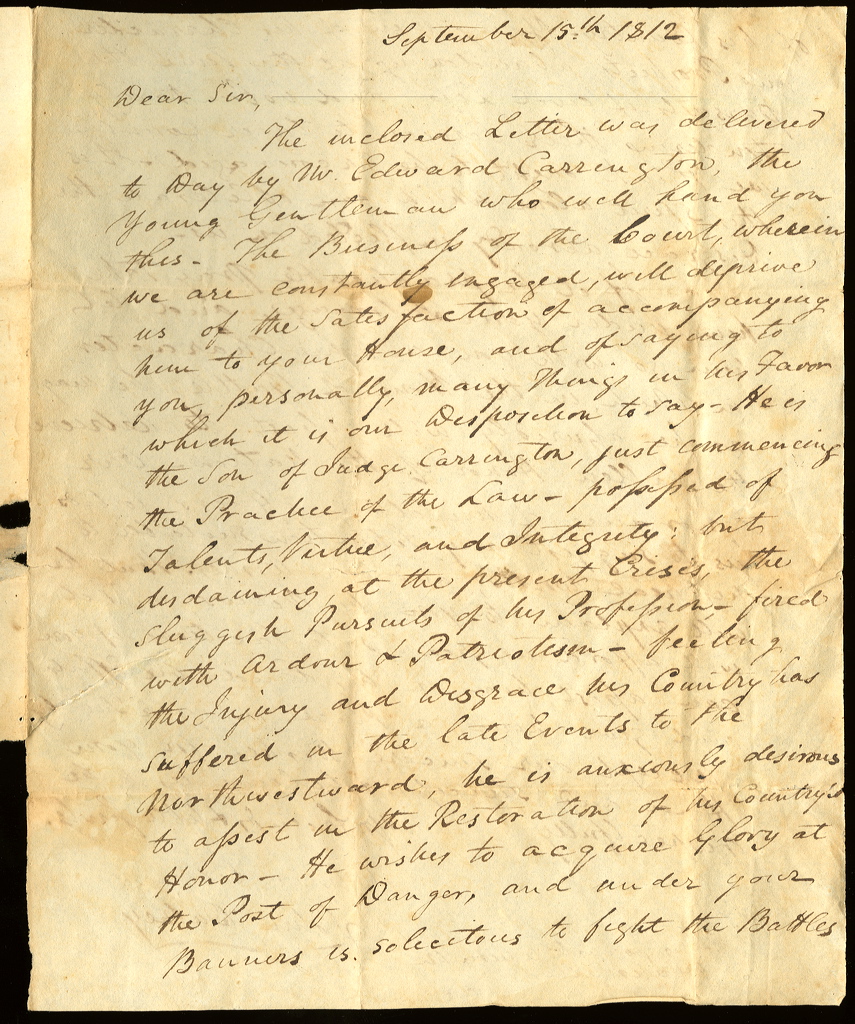 September 15th 1812
Dear Sir,
The inclosed Letter was delivered
to Day by Mr. Edward Carrington, the
Young Gentleman who will hand you
this - The Business of the Court, wherein
we are constantly engaged, will deprive
us of the Satisfaction of accompanying
him to your House, and of saying to
you, personally, many Things in his Favor
which it is our Disposition to say - He is
the Son of Judge Carrington, just commencing
the Practice of the Law - possessed of
Talents, Virtue, and Integrity; but
disdaining, at the present Crisis, the
sluggish Pursuits of his Profession, - fired
with Ardour & Patriotism - feeling
the Injury and Disgrace his Country has
suffered in the late Events to the
Northwestward, he is anxiously desirous
to assist in the Restoration of his Country's
Honor - He wishes to acquire Glory at
the Post of Danger, and under your
Banners is solicitous to fight the Battles